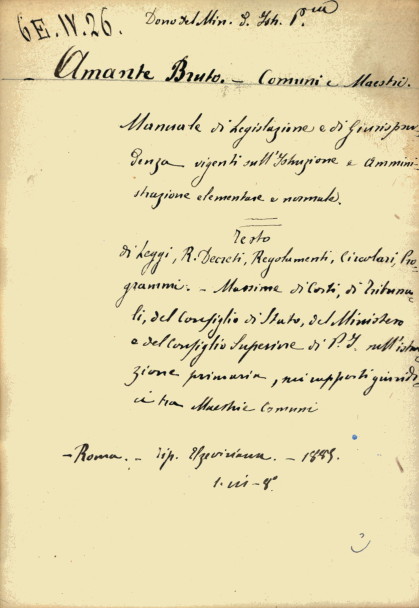 6E.IV.26. Dono del Min. d. Ist. P.ca
- Amante Bruto. - Comuni e Maestri.
Manuale di Legislazione e di Giurispru-
denza vigenti sull'Istruzione e Ammini-
strazione elementare e normale.
Testo
di Leggi, R. Decreti, Regolamenti, Circolari, Pro-
grammi. - Massime di Corti, di Tribuna-
li, del Consiglio di Stato, del Ministero
e del Consiglio Superiore di P. I. sull'istru-
zione primaria, nei rapporti giuridi-
ci tra Maestri e Comuni
- Roma. - Tip. Elzeviriana. - 1885.
1. in-8°